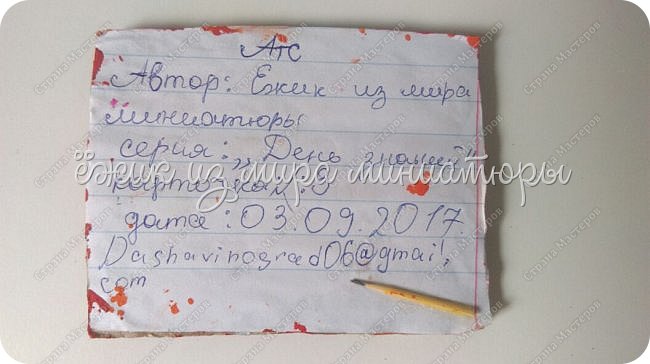 Атс
Автор: Ежик из мира
миниатюры
серия: „День знаний"
карточка №3
дата: 03.09.2017.
Dashavinograd06@gmail,
com
ёжик из мира миниатюры
Страна Мастеров